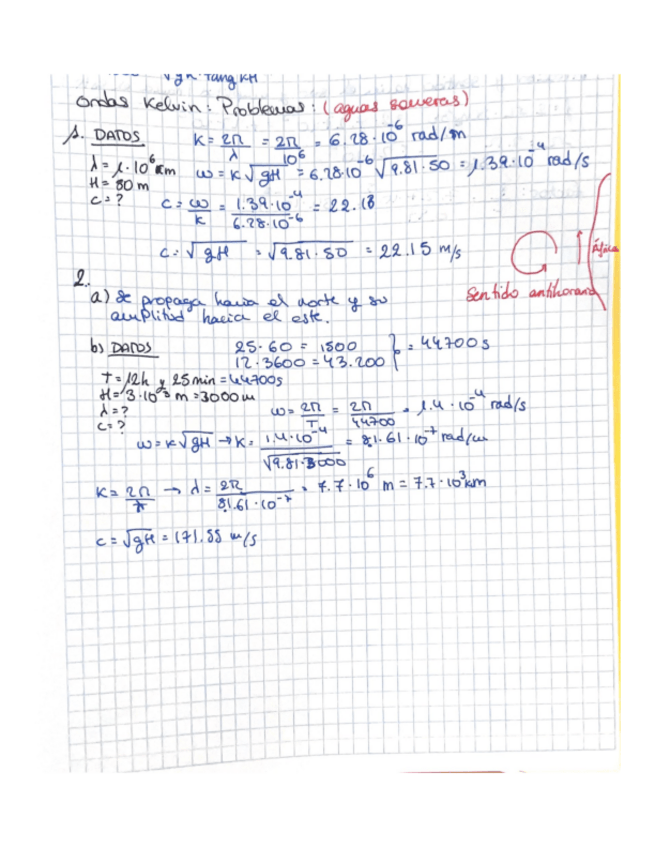 √gk · tang kH
Ondas Kelvin: Problemas: (aguas someras)
1. DATOS K = 2π/λ = 2π/10⁶ = 6.28·10⁻⁶ rad/m
λ = 1·10⁶ km ω = K√gH = 6.28·10⁻⁶ √9.81·50 = 1.39·10⁻⁴ rad/s
H = 50 m
c = ? c = ω/K = 1.39·10⁻⁴/6.28·10⁻⁶ = 22.18
c = √gH = √9.81·50 = 22.15 m/s
África
Sentido antihorario
2.
a) Se propaga hacia el norte y su
amplitud hacia el este.
b) DATOS 25·60 = 1500 } = 44700 s
12·3600 = 43.200
T = 12h y 25 min = 44700s
H = 3·10³ m = 3000 m
λ = ? ω = 2π/T = 2π/44700 = 1.4·10⁻⁴ rad/s
c = ?
ω = K√gH → K = 1.4·10⁻⁴/√9.81·3000 = 8.161·10⁻⁷ rad/m
K = 2π/λ → λ = 2π/8.161·10⁻⁷ = 7.7·10⁶ m = 7.7·10³ km
c = √gH = 171.55 m/s